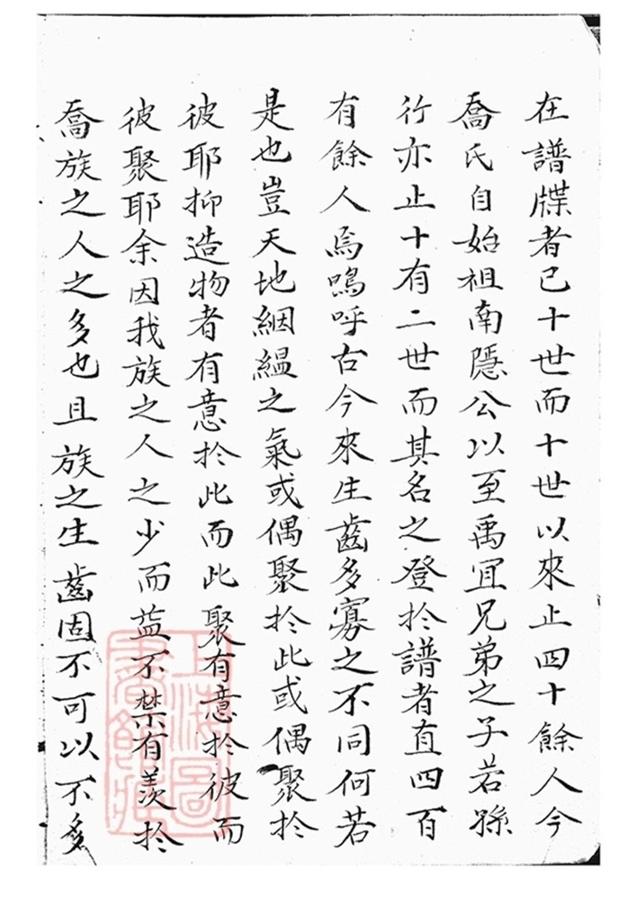 在譜牒者已十世而十世以來止四十餘人今
喬氏自始祖南隱公以至禹冝兄弟之子若孫
行亦止十有二世而其名之登於譜者直四百
有餘人焉嗚呼古今來生齒多寡之不同何若
是也豈天地絪縕之氣或偶聚於此或偶聚於
彼耶抑造物者有意於此而此聚有意於彼而
彼聚耶余因我族之人之少而益不禁有羨於
喬族之人之多也且族之生齒固不可以不多
上海圖書館藏